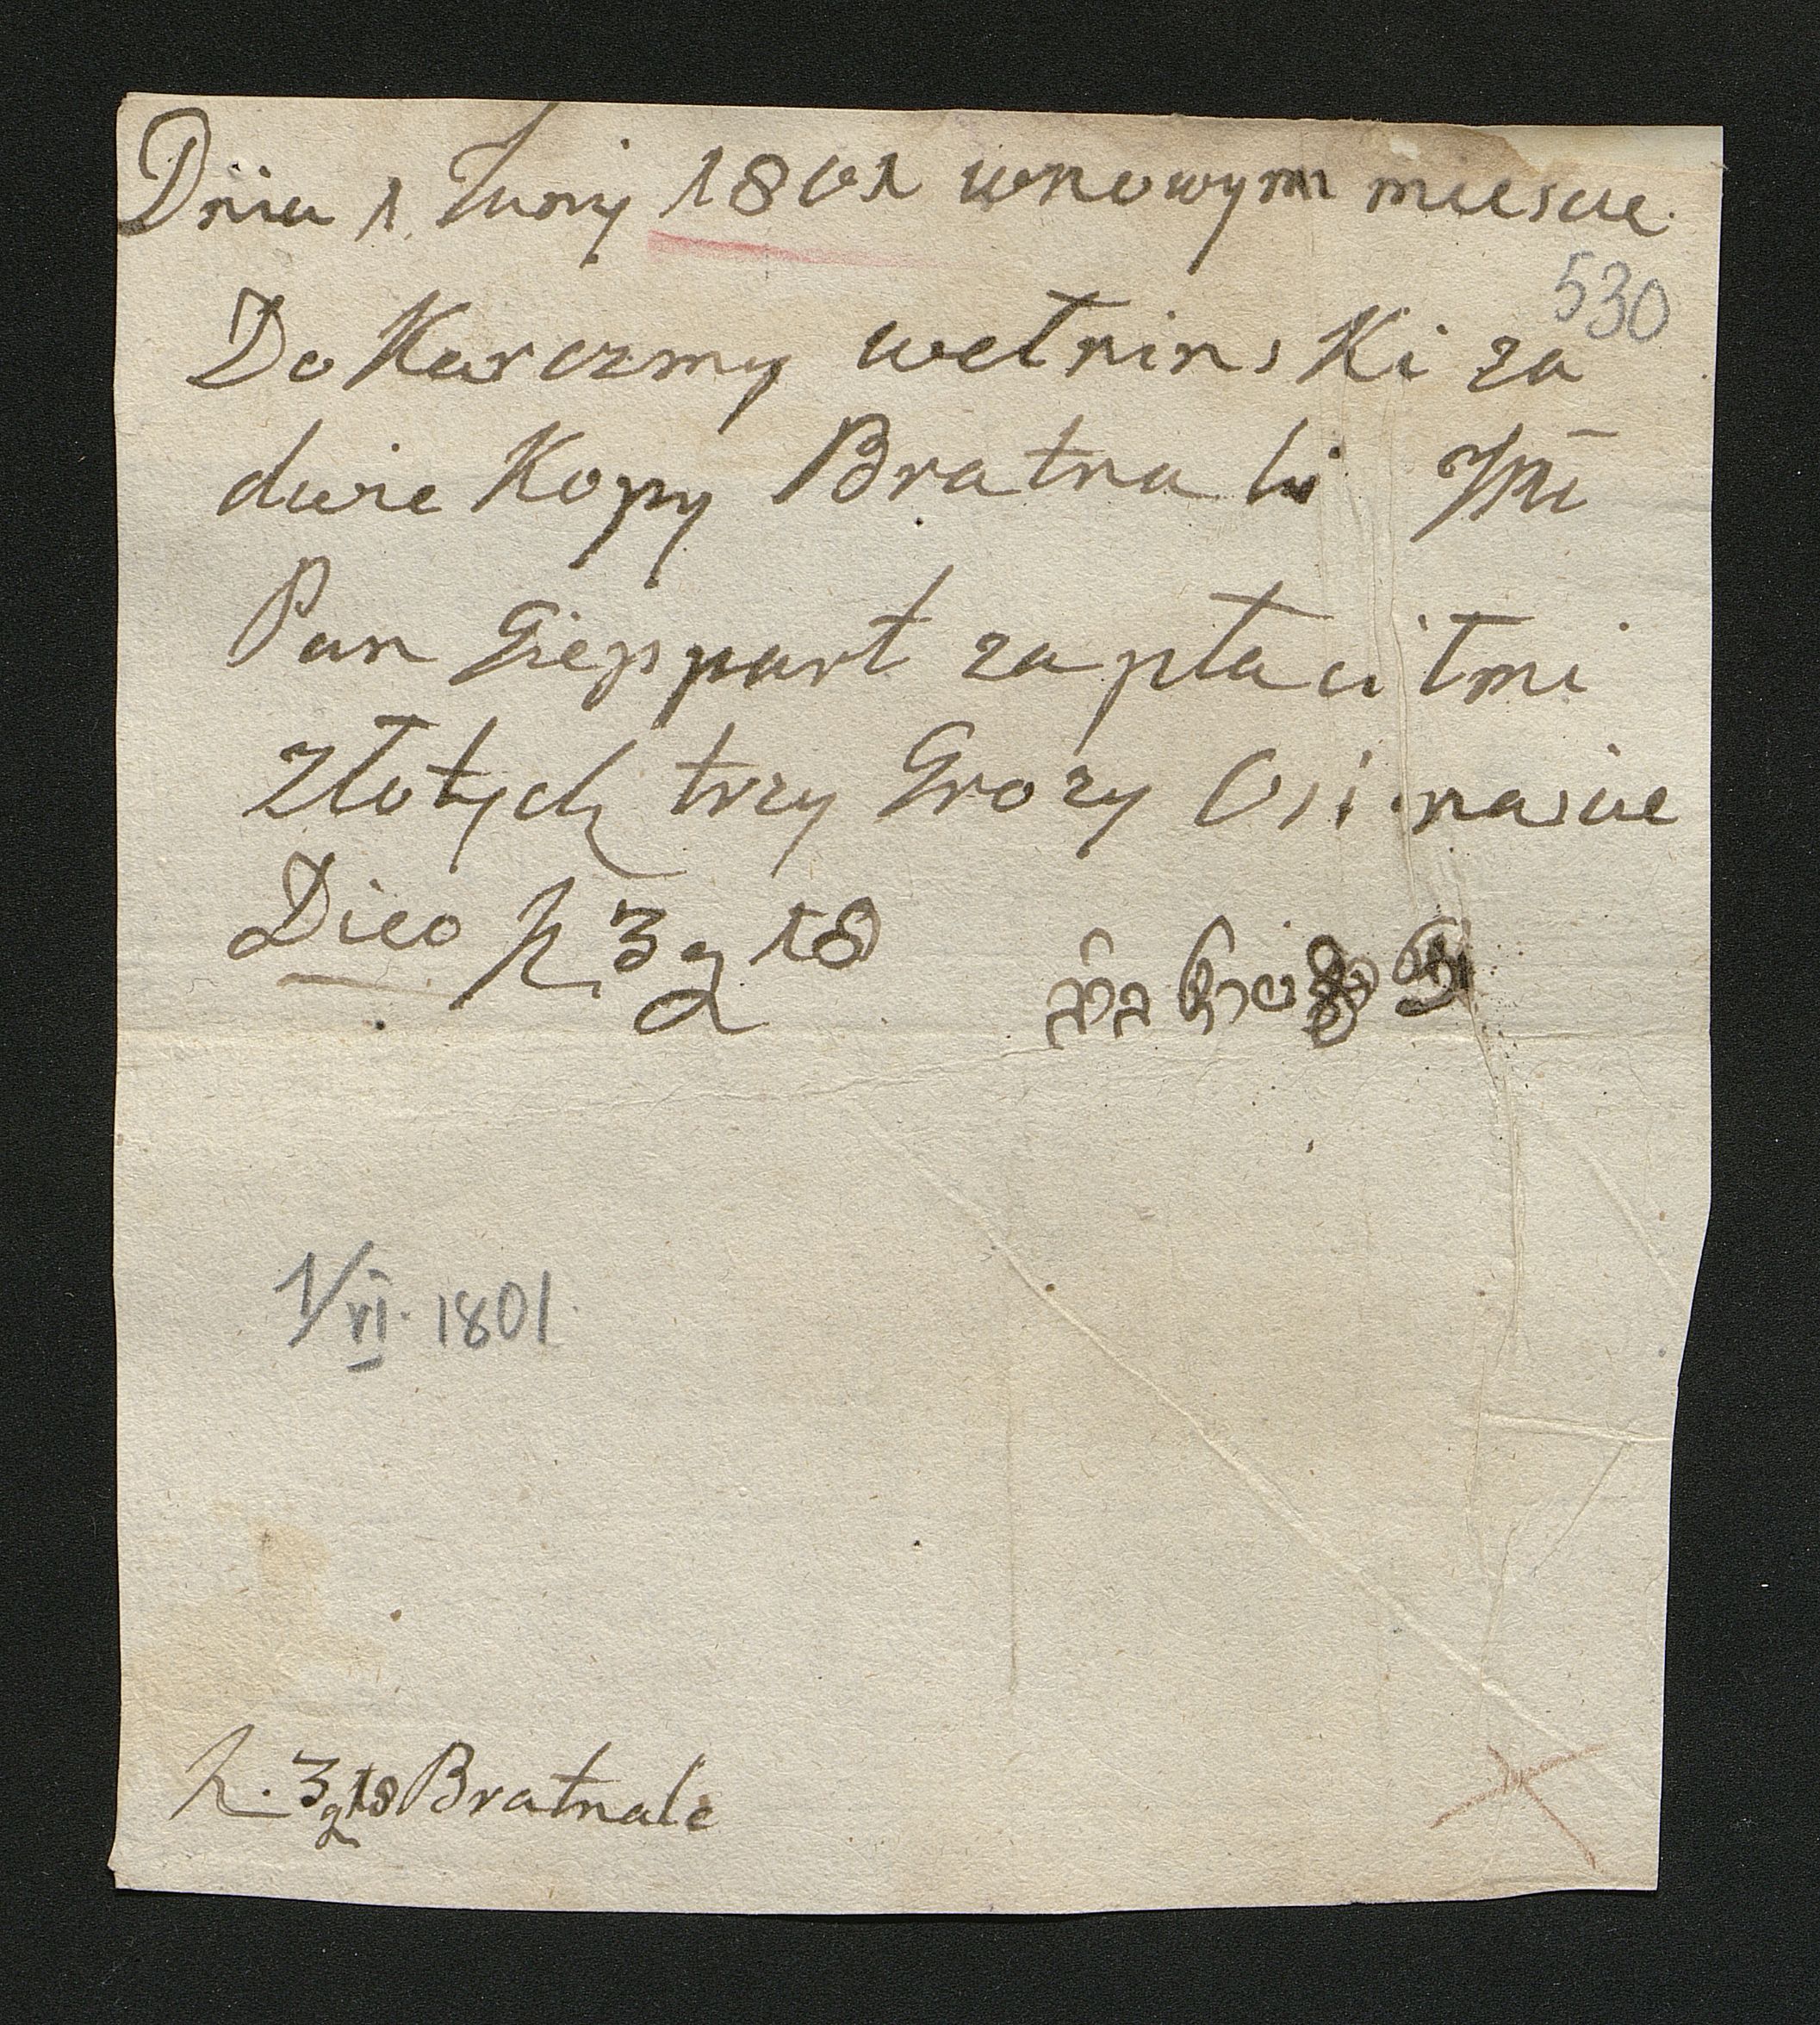 Dnia 1 Juny 1801 wnowym miescie
530
Do Karczmy wełnins Ki za
dwie Kopy Bratna li JMć
Pan Gieppart za płacił mi
złotych trzy Grozy Osi nascie
Dico zł 3 g 18
1/VI. 1801.
zł. 3 g 18 Bratnale